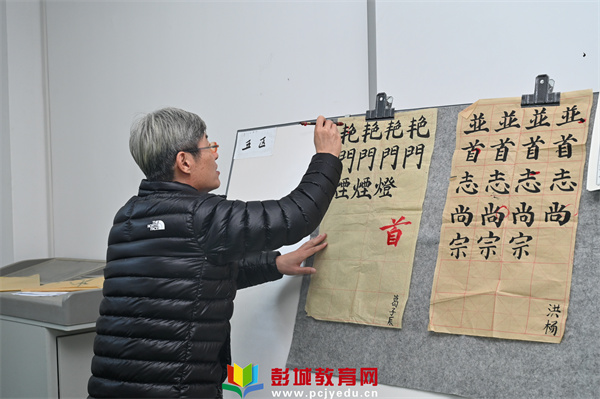 五区
艳艳艳艳
門門門門
煙煙燈
首
葛子辰
並並並並
首首首首
志志志志
尚尚尚尚
宗宗宗
洪杨
THE NORTH FACE
彭城教育网
www.pcjyedu.cn